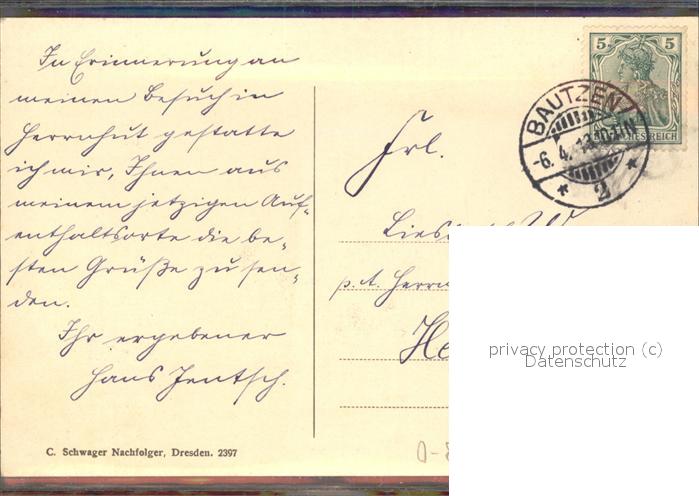 In Erinnerung an
meinen Besuch in
Herrnhut gestatte
ich mir, Ihnen aus
meinem jetzigen Auf-
enthaltsorte die be-
sten Grüße zu sen-
den.
Ihr ergebener
Hans Jentsch.
C. Schwager Nachfolger, Dresden. 2397
5 5
BAUTZEN
-6.4.
* 2 *
Frl.
p. A. Herrn
He
privacy protection (c)
Datenschutz